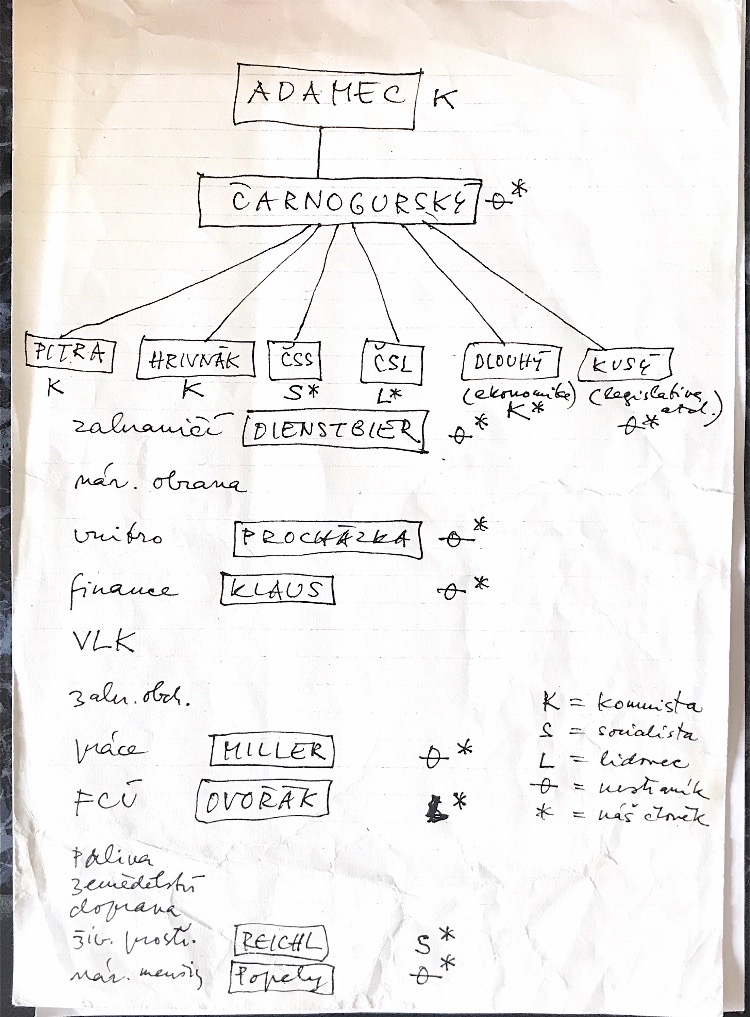 ADAMEC K
ČARNOGURSKÝ ⦵*
PITRA HRIVNÁK ČSS ČSL DLOUHÝ KUSÝ
K K S* L* (ekonomika) K* (legislativa atd.) ⦵*
zahraničí DIENSTBIER ⦵*
nár. obrana
vnitro PROCHÁZKA ⦵*
finance KLAUS ⦵*
VLK
zahr. obch.
práce MILLER ⦵*
FCÚ DVOŘÁK *
paliva
zemědělství
doprava
živ. prostř. REICHL S*
nár. menšiny Popely ⦵*
K = komunista
S = socialista
L = lidovec
⦵ = nestraník
* = náš člověk